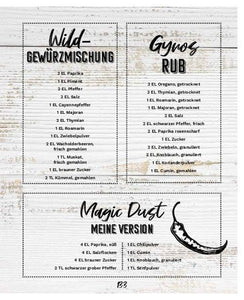 Wild-
GEWÜRZMISCHUNG
2 EL Paprika
1 EL Piment
2 EL Pfeffer
2 EL Salz
1 EL Cayennepfeffer
1 EL Majoran
2 EL Thymian
1 EL Rosmarin
1 EL Zwiebelpulver
2 EL Wacholderbeeren,
frisch gemahlen
1 TL Muskat,
frisch gemahlen
1 EL brauner Zucker
2 TL Kümmel, gemahlen
Gyros
RUB
3 EL Oregano, getrocknet
2 EL Thymian, getrocknet
1 EL Rosmarin, getrocknet
1 EL Majoran, getrocknet
2 EL Salz
2 EL schwarzer Pfeffer, frisch
2 EL Paprika rosenscharf
1 EL Zucker
2 EL Zwiebeln, granuliert
2 EL Knoblauch, granuliert
1 EL Korianderpulver
1 EL Cumin, gemahlen
Magic Dust
MEINE VERSION
4 EL Paprika, süß
4 EL Salzflocken
4 EL brauner Zucker
2 TL schwarzer grober Pfeffer
1 EL Chilipulver
1 EL Cumin
1 EL Knoblauch, granuliert
1 TL Senfpulver